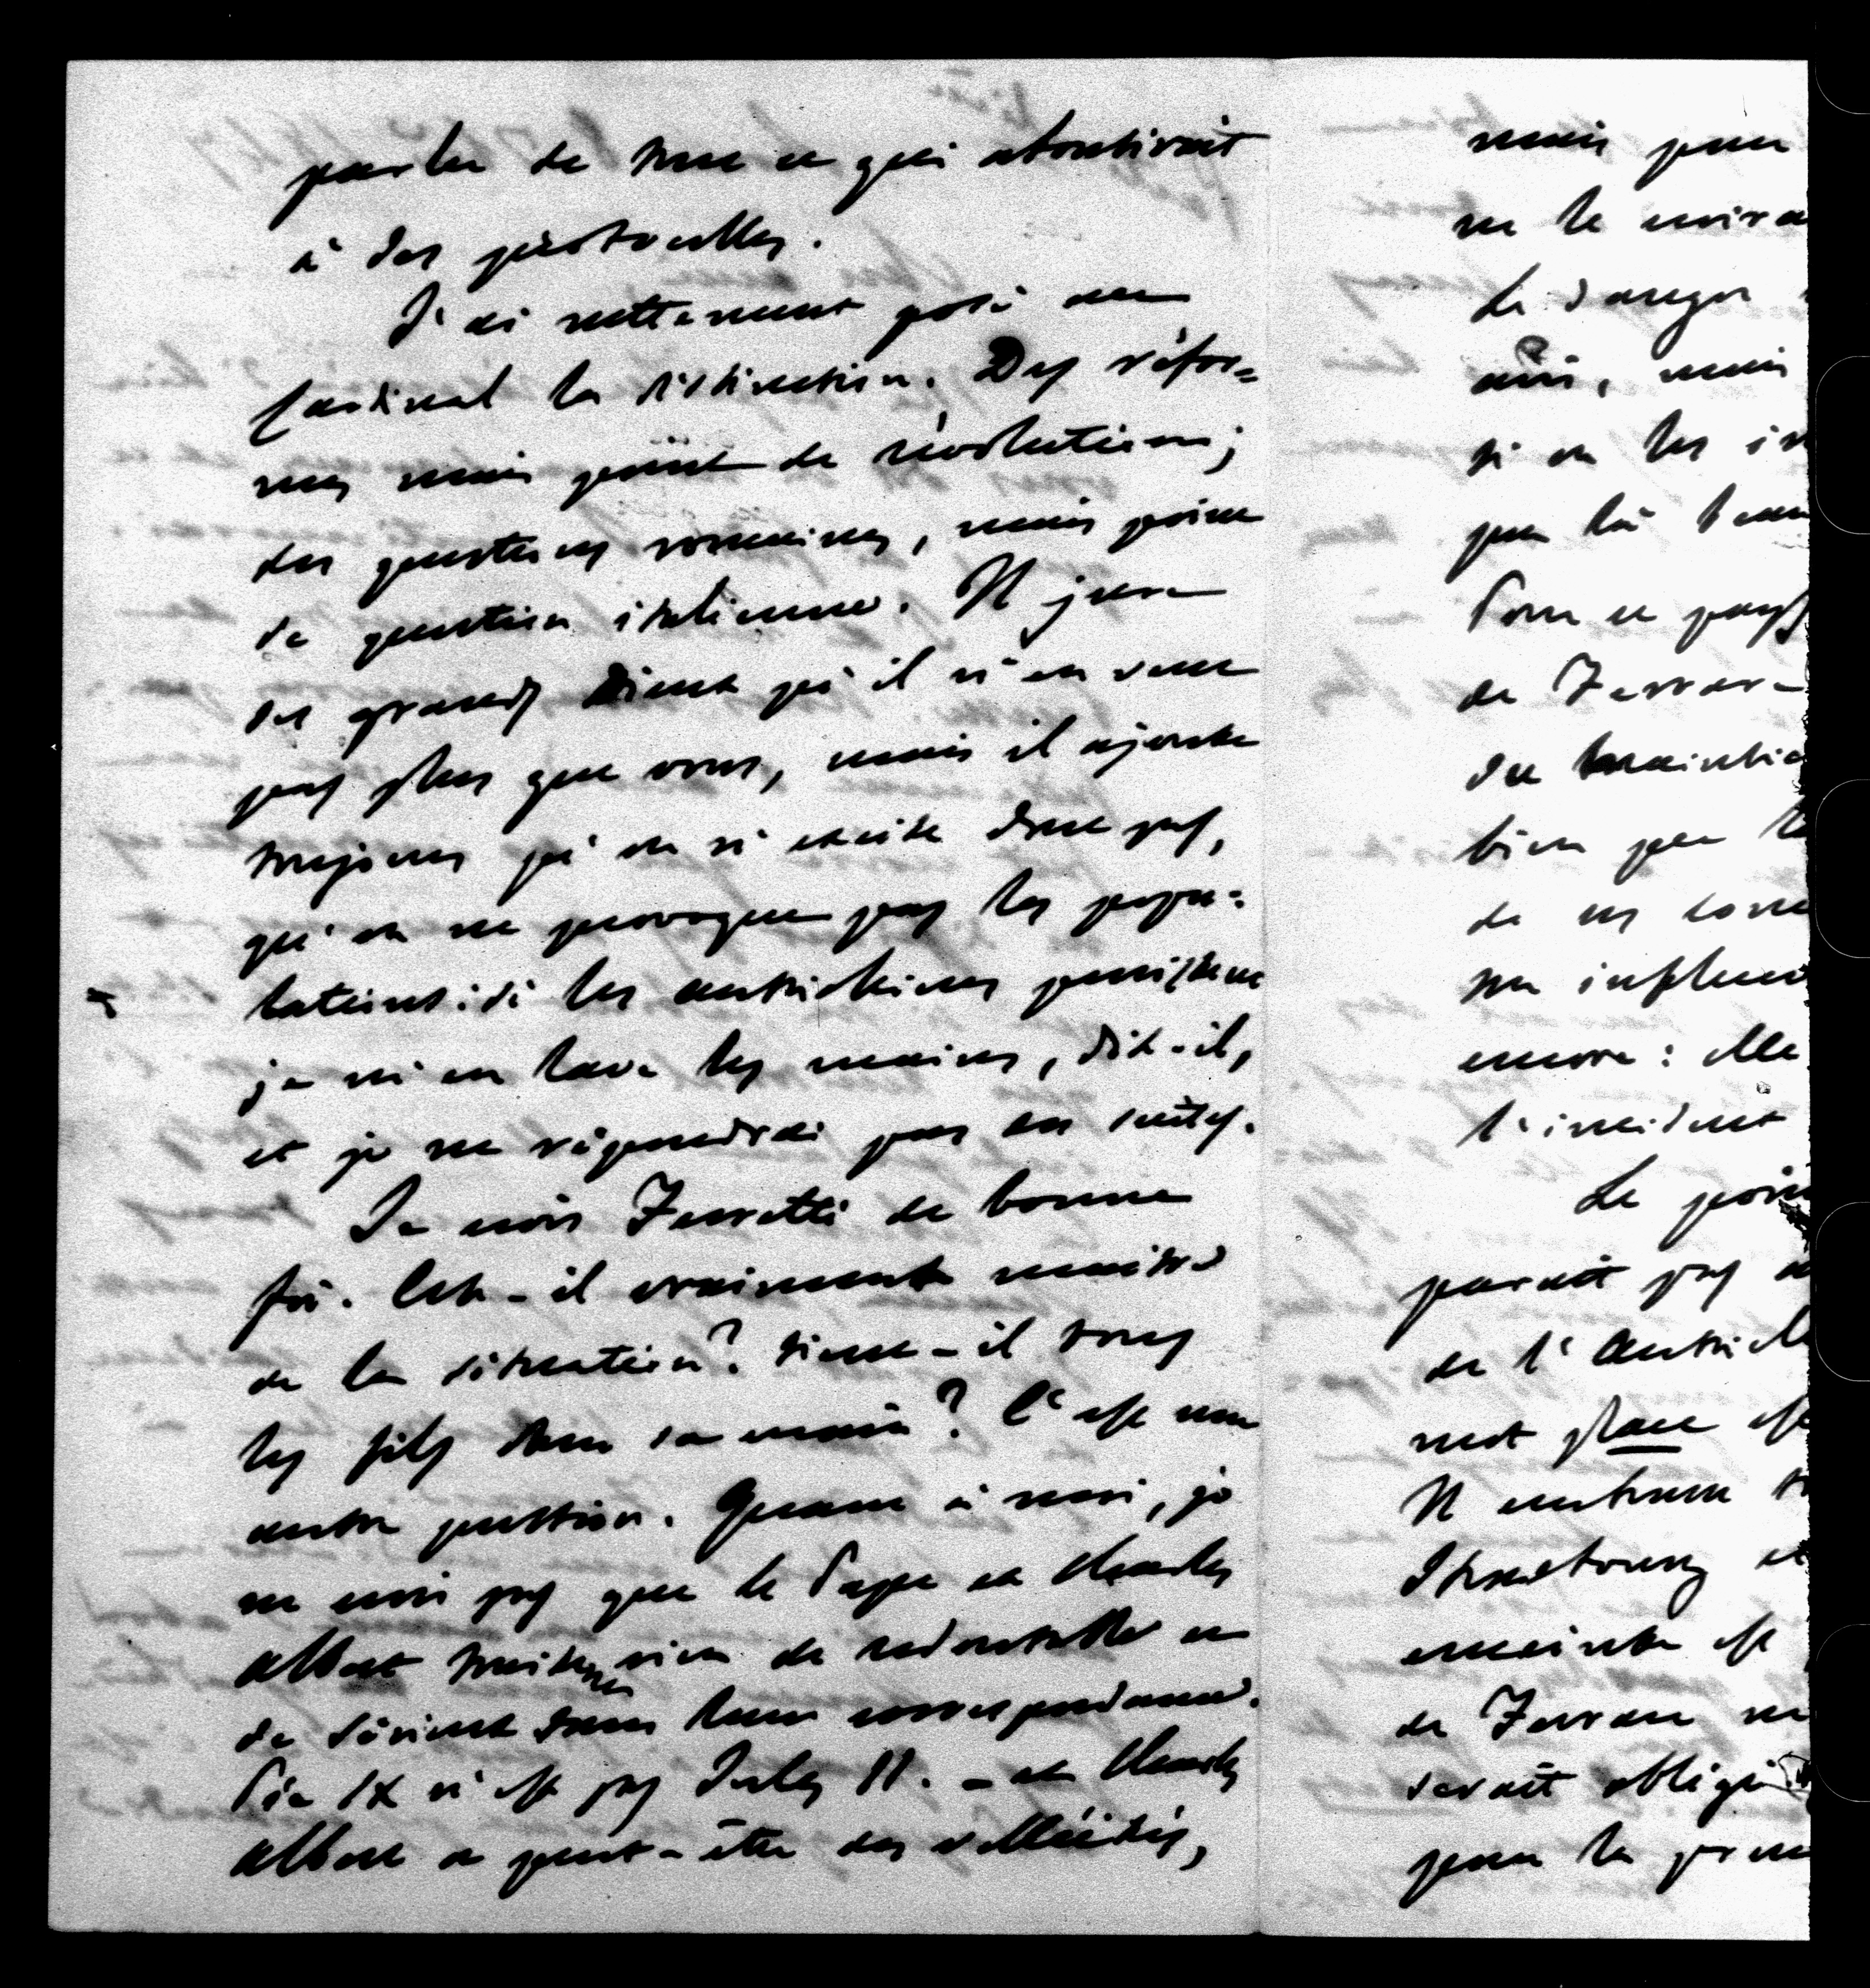 parler de tout ce qui aboutirait
à des querelles.
J'ai nettement posé au
Cardinal la distinction. Des réfor=
mes mais point de révolutions;
des questions romaines, mais point
de question italienne. Il jure
ses grands Dieux qu'il n'en veut
pas plus que vous, mais il ajoute
toujours qu'on n'excite donc pas,
qu'on ne provoque pas les popu=
lations: si les autrichiens persistent
je m'en lave les mains, dit-il,
et je ne répondrai pas des suites.
Je crois Ferretti de bonne
foi. Est-il vraiment maître
de la situation? tient-il tous
les fils dans sa main? C'est une
autre question. Quant à moi, je
ne crois pas que le Pape et Charles
Albert traitent rien de redoutable et
de sérieux dans leur correspondance.
Pie IX n'est pas Jules II. - et Charles
Albert a peut-être des velléités,
mais peu
ne le croira
Le danger
ainsi, mais
si on les
par là
Pour ce pays
de Ferrare
du maintien
bien que
de ces
son influen
encore: elle
l'incident
Le poin
paraît pas
de l'Autriche
mot place est
Il entend
Strasbourg et
enceinte est
de Ferrare ne
serait obligé
pour la prem